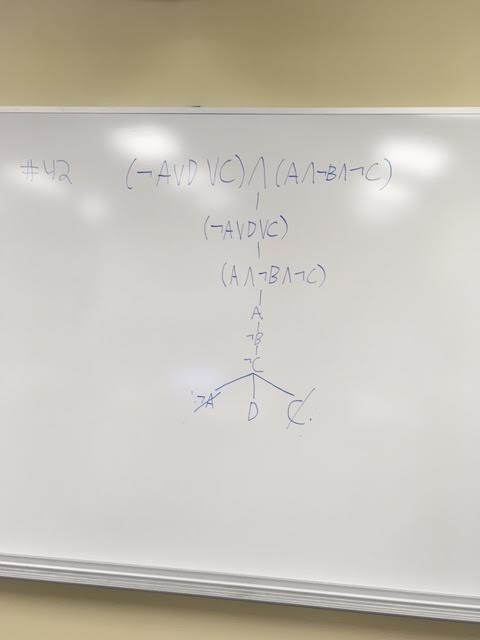 #42 (¬A∨D∨C)∧(A∧¬B∧¬C)
(¬A∨D∨C)
(A∧¬B∧¬C)
A
¬B
¬C
¬A D C